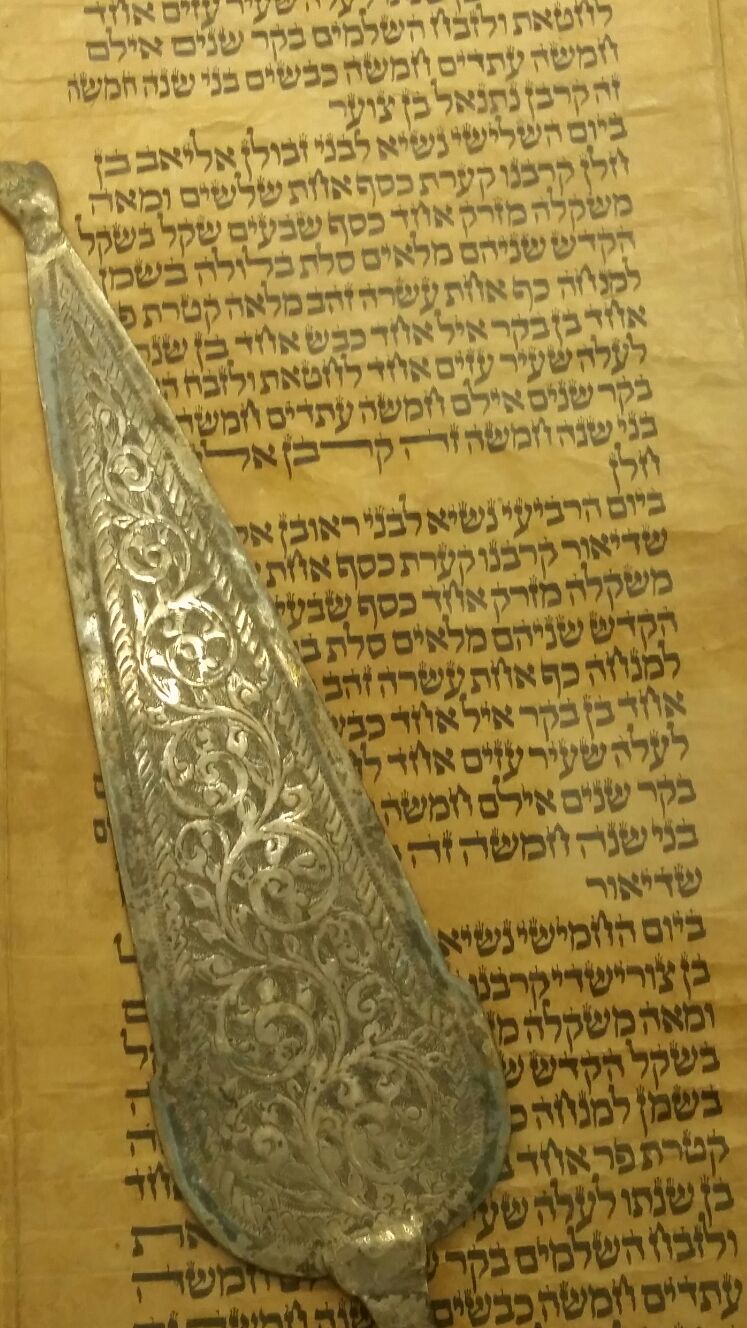 לעלה שעיר עזים אחד
לחטאת ולזבח השלמים בקר שנים אילם
חמשה עתדים חמשה כבשים בני שנה חמשה
זה קרבן נתנאל בן צוער
ביום השלישי נשיא לבני זבולן אליאב בן
חלן קרבנו קערת כסף אחת שלשים ומאה
משקלה מזרק אחד כסף שבעים שקל בשקל
הקדש שניהם מלאים סלת בלולה בשמן
למנחה כף אחת עשרה זהב מלאה קטרת
אחד בן בקר איל אחד כבש אחד בן
לעלה שעיר עזים אחד לחטאת ולזבח
בקר שנים אילם חמשה עתדים חמשה
בני שנה חמשה זה קרבן
חלן
ביום הרביעי נשיא לבני ראובן
שדיאור קרבנו קערת כסף אחת
משקלה מזרק אחד כסף
הקדש שניהם מלאים סלת
למנחה כף אחת עשרה זהב
אחד בן בקר איל אחד
לעלה שעיר עזים אחד
בקר שנים אילם חמשה
בני שנה חמשה זה
שדיאור
ביום החמישי נשיא
בן צורישדי קרבנו
ומאה משקלה
בשקל הקדש
בשמן למנחה
קטרת פר אחד
בן שנתו לעלה
ולזבח השלמים בקר
עתדים חמשה כבשים בני שנה חמשה זה